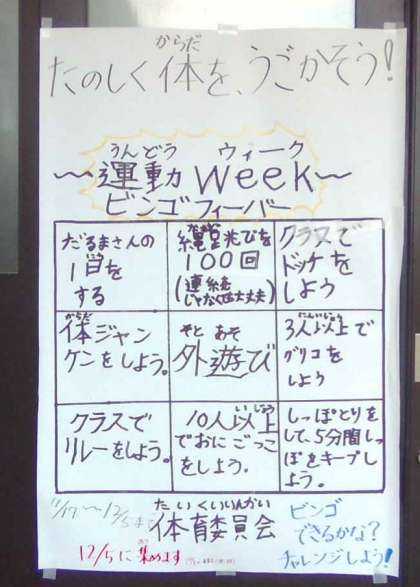 からだ
たのしく体を、うごかそう!
うんどう ウィーク
～運動week～
ビンゴフィーバー
だるまさんの
1日を
する
縄跳びを
100回
(連続
じゃなくても大丈夫)
クラスで
ドッヂを
しよう
からだ
体ジャン
ケンをしよう。
そと あそ
外遊び
にんいじょう
3人以上で
グリコを
しよう
クラスで
リレーをしよう。
いじょう
10人以上
でおにごっこ
をしよう.
しっぽとりを
して、5分間しっ
ぽをキープし
よう。
11/17～12/5まで
たいくいいんかい
体育委員会
12/5に集めます
ビンゴ
できるかな?
チャレンジしよう!